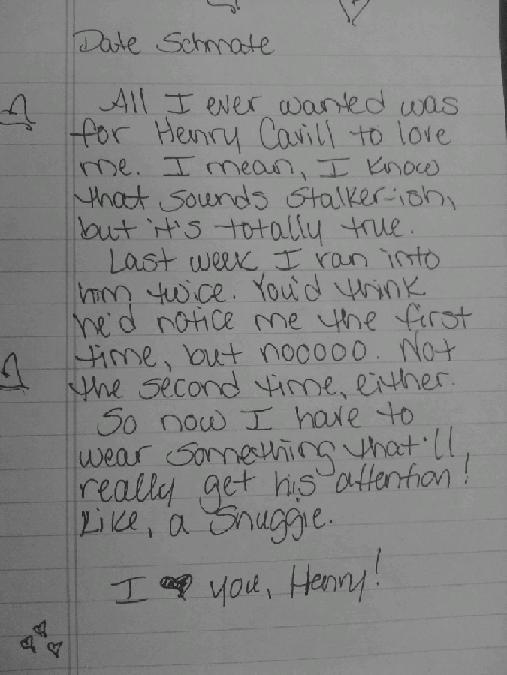 Date Schmate
All I ever wanted was
for Henry Cavill to love
me. I mean, I know
that sounds stalker-ish,
but it's totally true.
Last week, I ran into
him twice. You'd think
he'd notice me the first
time, but nooooo. Not
the second time, either.
So now I have to
wear something that'll
really get his attention!
Like, a Snuggie.
I ♥ you, Henry!